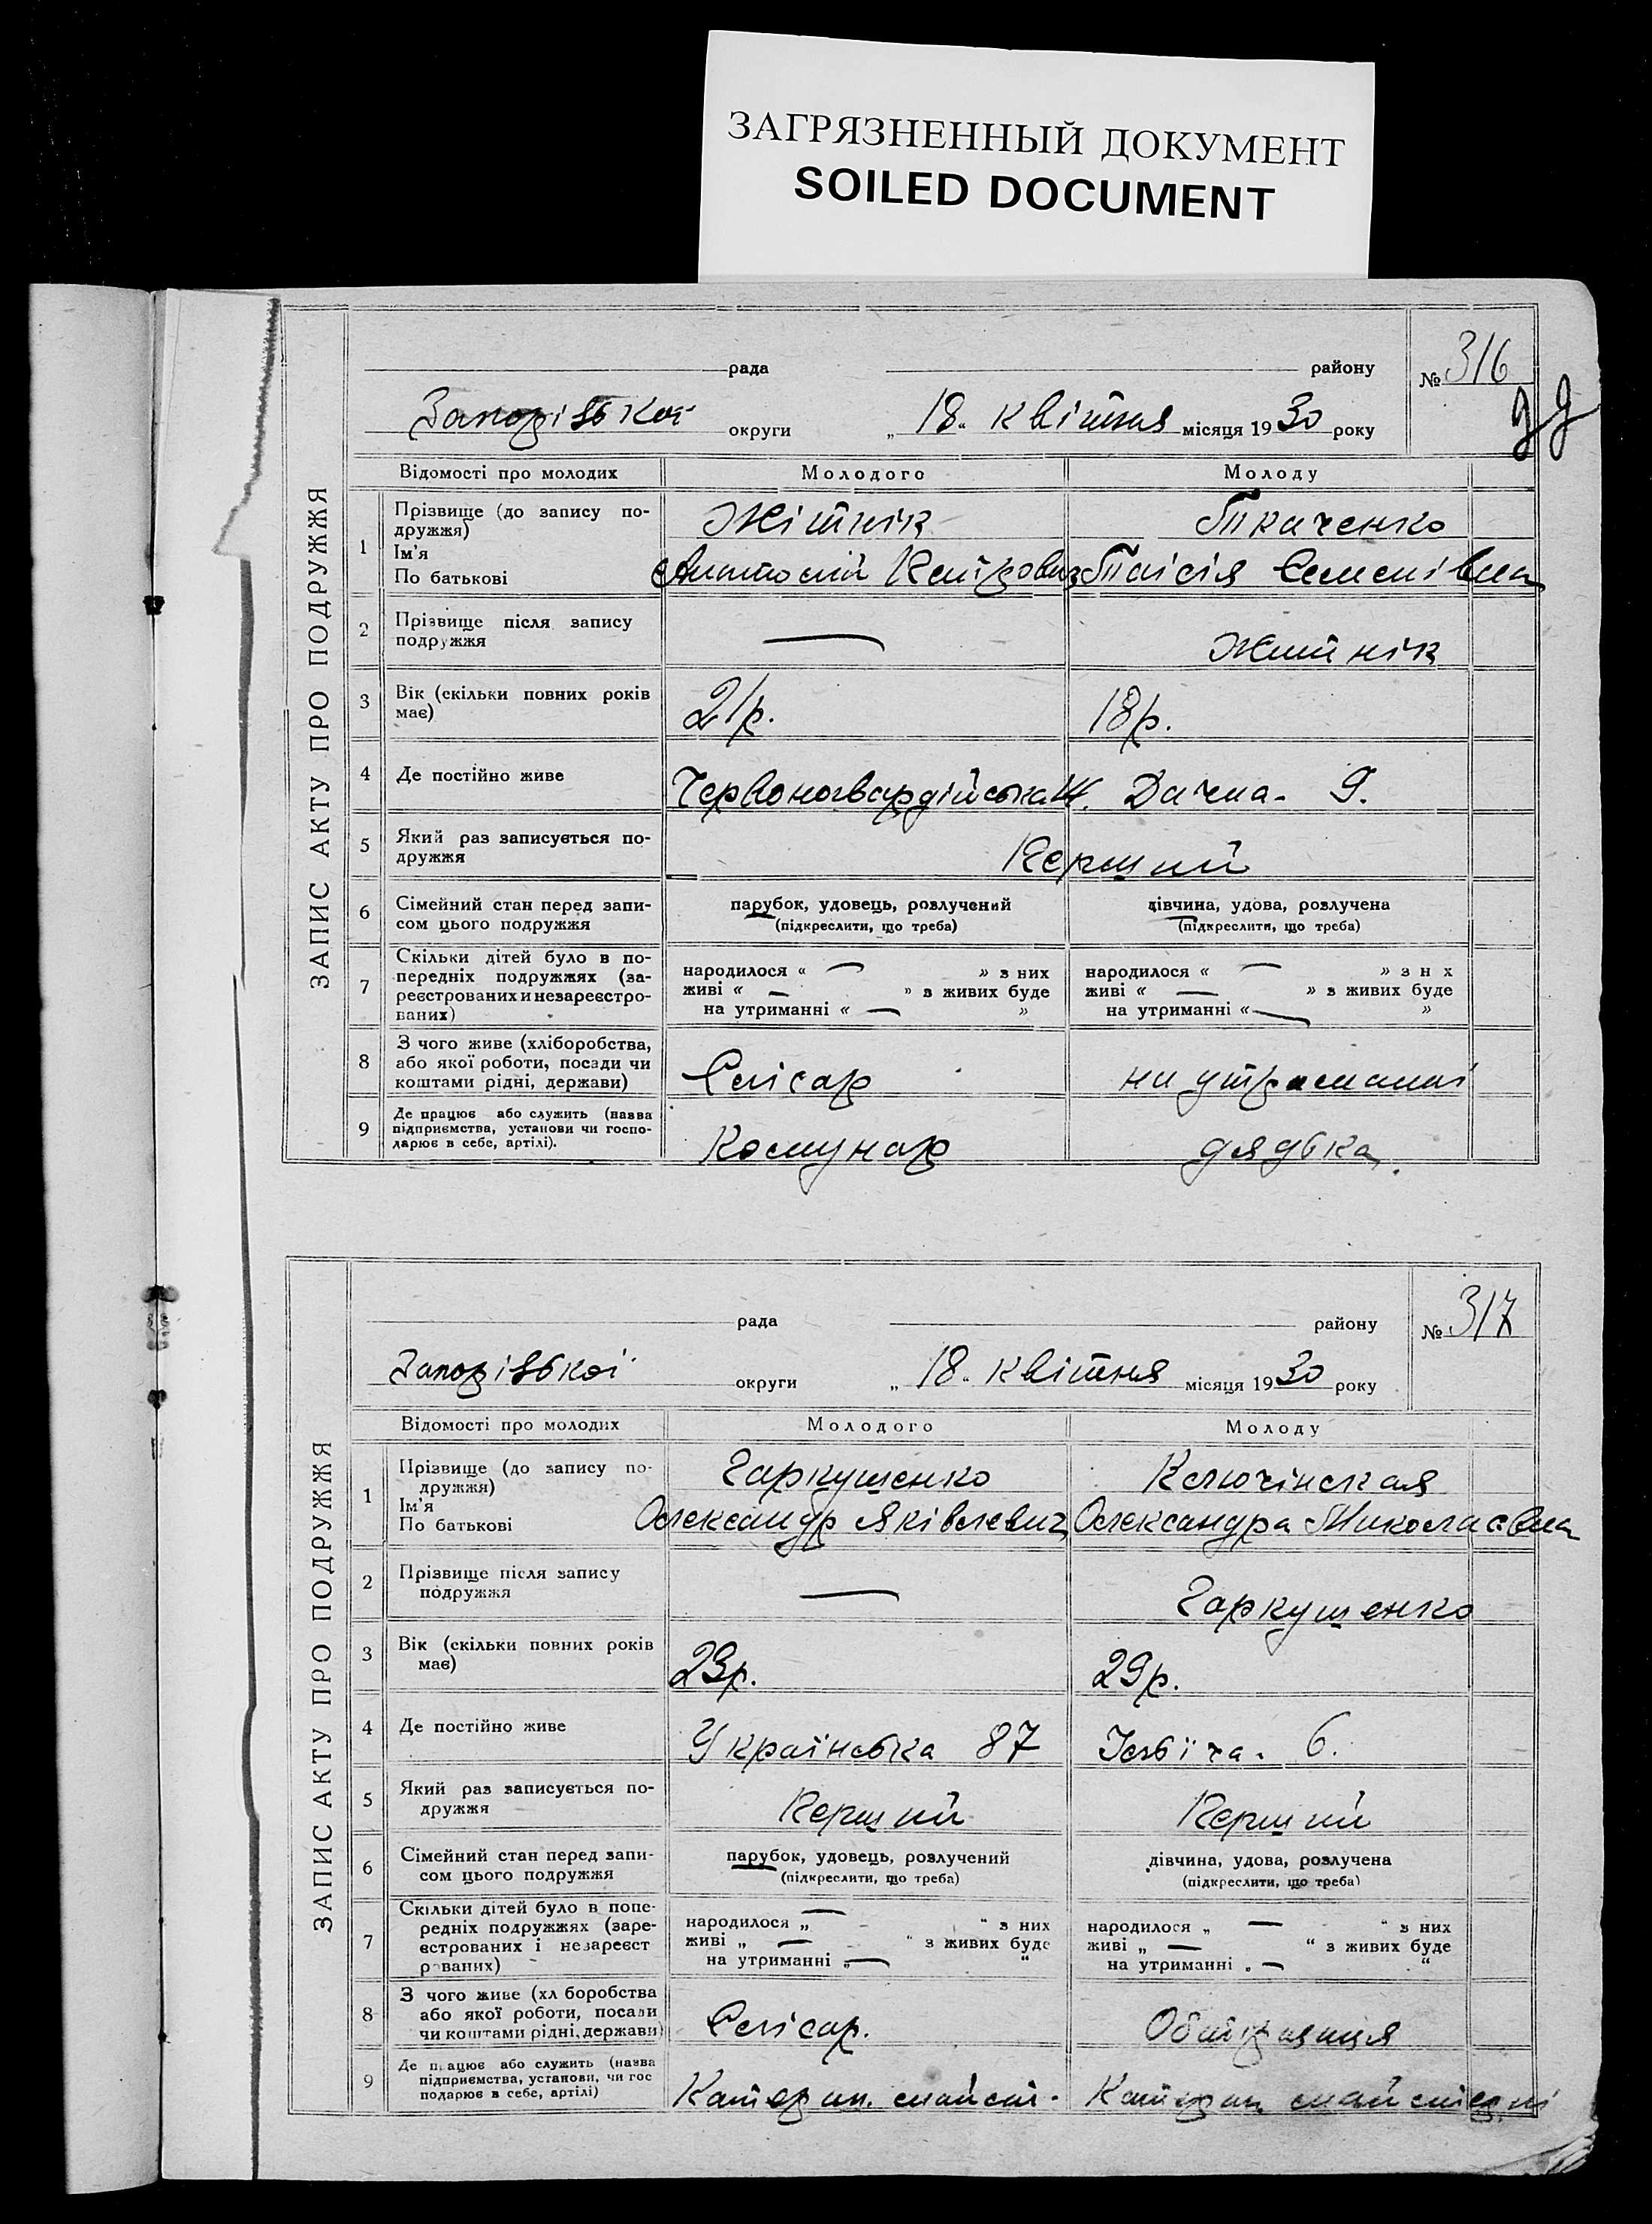 ЗАГРЯЗНЕННЫЙ ДОКУМЕНТ
SOILED DOCUMENT
ЗАПИС АКТУ ПРО ПОДРУЖЖЯ
рада району № 316
Запорізької округи „18" квітня місяця 1930 року
Відомості про молодих Молодого Молоду
1 Прізвище (до запису по-
дружжя) Жітнік Ткаченко
Ім'я
По батькові Антоній Петрович Таісія Семенівна
2 Прізвище після запису
подружжя — Житнік
3 Вік (скільки повних років
має) 21 р. 18 р.
4 Де постійно живе Червоногвардійська 14. Дачна - 9.
5 Який раз записується по-
дружжя Перший
6 Сімейний стан перед запи-
сом цього подружжя
парубок, удовець, розлучений
(підкреслити, що треба)
дівчина, удова, розлучена
(підкреслити, що треба)
7 Скільки дітей було в по-
передніх подружжях (за-
реєстрованих и незареєстро-
ваних)
народилося « — » з них
живі « — » з живих буде
на утриманні « — »
народилося « — » з н х
живі « — » з живих буде
на утриманні « — »
8 З чого живе (хліборобства,
або якої роботи, посади чи
коштами рідні, держави) Слісар на утриманні
9 Де працює або служить (назва
підприємства, установи чи госпо-
дарює в себе, артілі). Комунар дядька.
ЗАПИС АКТУ ПРО ПОДРУЖЖЯ
рада району № 317
Запорізької округи „18" квітня місяця 1930 року
Відомості про молодих Молодого Молоду
1 Прізвище (до запису по-
дружжя) Гаркушенко Ключінская
Ім'я
По батькові Олександр Яківлевич Олександра Миколаєвна
2 Прізвище після запису
подружжя — Гаркушенко
3 Вік (скільки повних років
має) 23 р. 29 р.
4 Де постійно живе Українська 87 Ільїча. 6.
5 Який раз записується по-
дружжя Перший Перший
6 Сімейний стан перед запи-
сом цього подружжя
парубок, удовець, розлучений
(підкреслити, що треба)
дівчина, удова, розлучена
(підкреслити, що треба)
7 Скільки дітей було в попе-
редніх подружжях (заре-
єстрованих і незареєст
р ваних)
народилося „ — " з них
живі „ — " з живих буде
на утриманні „ — "
народилося „ — " з них
живі „ — " з живих буде
на утриманні „ — "
8 З чого живе (хл боробства
або якої роботи, посади
чи коштами рідні, держави) Слісар.
9 Де працює або служить (назва
підприємства, установи, чи гос
подарює в себе, артілі) Катерин. майст. Катерин майстерні